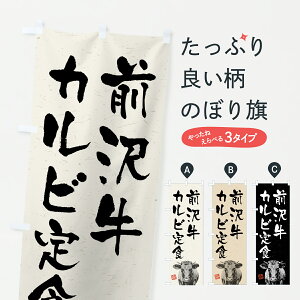 前沢牛
カルビ定食
たっぷり
良い柄
のぼり旗
やったね
えらべる3タイプ
A
B
C
前沢牛
カルビ定食
前沢牛
カルビ定食
前沢牛
カルビ定食